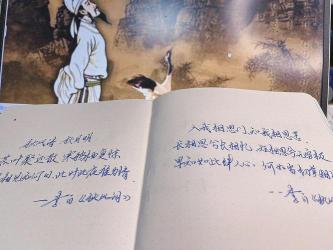 秋风清 秋月明
落叶聚还散 寒鸦栖复惊
相思相见知何日，此时此夜难为情
—李白《秋风词》
入我相思门 知我相思苦
长相思兮长相忆 短相思兮无穷极
早知如此绊人心，何如当初莫相识
--李白《秋风词》